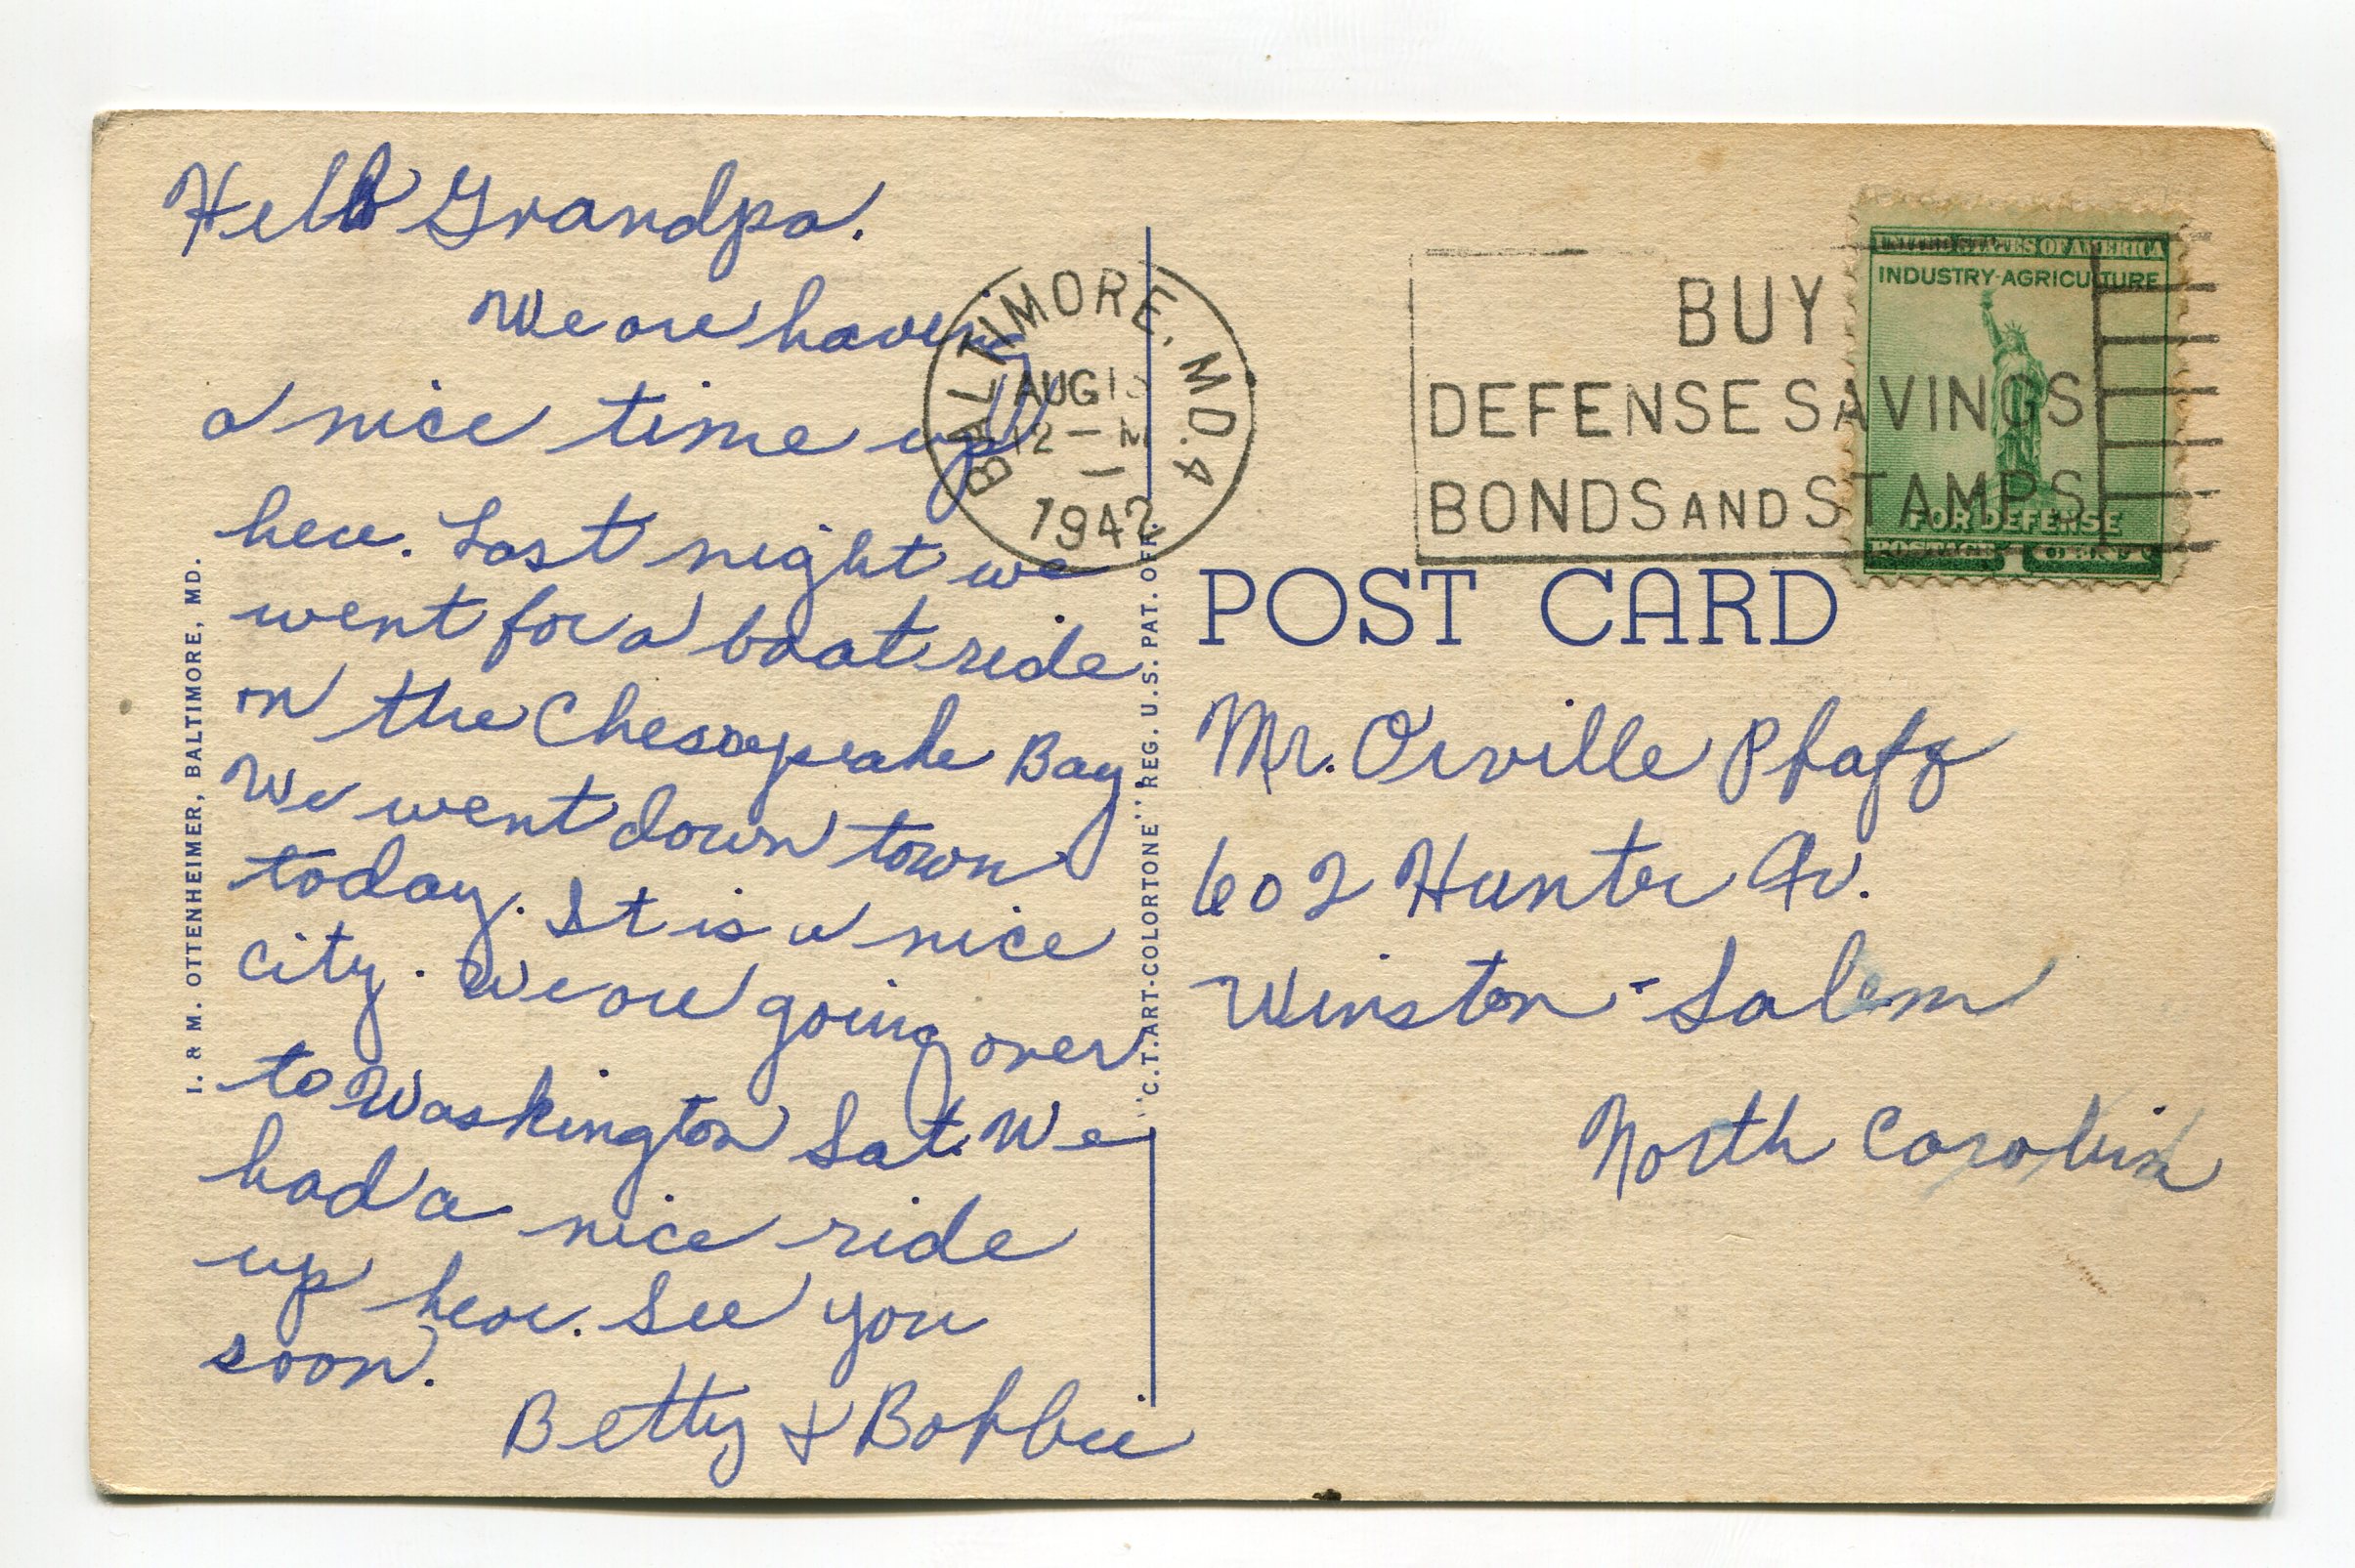 Hello Grandpa.
We are having
a nice time up
here. Last night we
went for a boat ride
on the Chesapeake Bay.
We went down town
today. It is a nice
city. We are going over
to Washington Sat. We
had a nice ride
up here. See you
soon.
Betty & Bobbie
I. & M. OTTENHEIMER, BALTIMORE, MD.
"C.T. ART-COLORTONE" REG. U.S. PAT. OFF.
BALTIMORE, MD. 4
AUG
12 – M
1942
BUY
DEFENSE SAVINGS
BONDS AND STAMPS
UNITED STATES OF AMERICA
INDUSTRY-AGRICULTURE
FOR DEFENSE
POSTAGE 1 CENT
POST CARD
Mr. Orville Pfaff
602 Hunter Av.
Winston-Salem
North Carolina